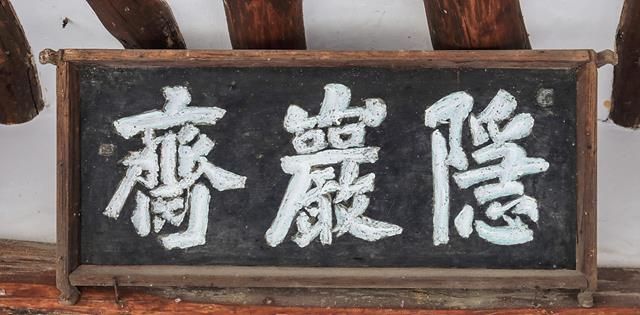 隱巖齋